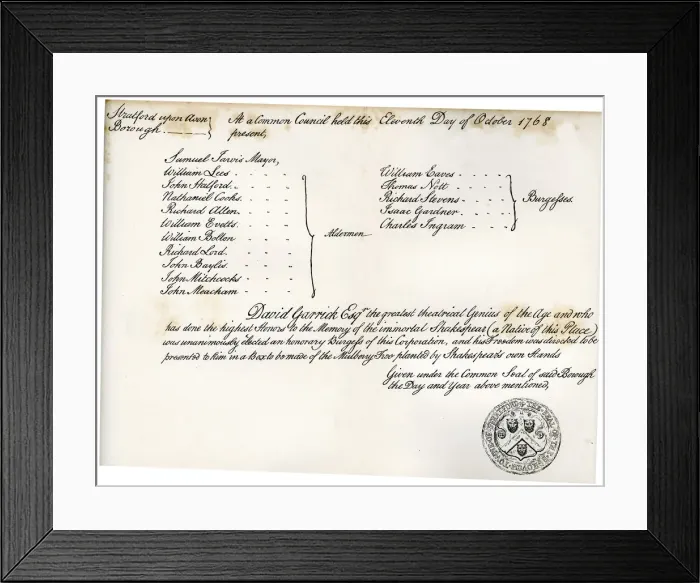 Stratford upon Avon
Borough
At a Common Council held this Eleventh Day of October 1768
present,
Samuel Jarvis Mayor,
William Lees
John Halford
Nathaniel Cooks
Richard Allen
William Evetts
William Bolton
Richard Lord
John Baylis
John Mitchcocks
John Meacham
Aldermen
William Eaves
Thomas Nott
Richard Stevens
Isaac Gardner
Charles Ingram
Burgesses.
David Garrick Esqr. the greatest theatrical Genius of the Age and who
has done the highest Honors to the Memory of the immortal Shakespear (a Native of this Place)
was unanimously elected an honorory Burgess of this Corporation, and his Freedom was directed to be
presented to him in a Box to be made of the Mulberry Tree planted by Shakespear's own Hands
Given under the Common Seal of said Borough
the Day and Year above mentioned,